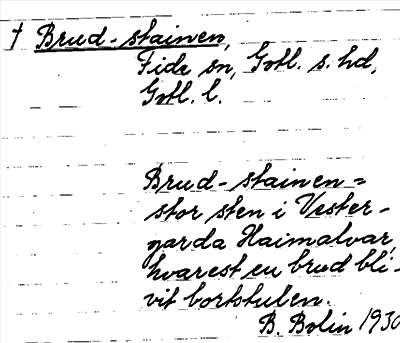 † Brud-stainen,
Fide sn, Gotl. s. hd,
Gotl. l.
Brud-stainen =
stor sten i Vester-
garda Haimalvar,
hvarest en brud bli-
vit bortstulen.
B. Bolin 1930